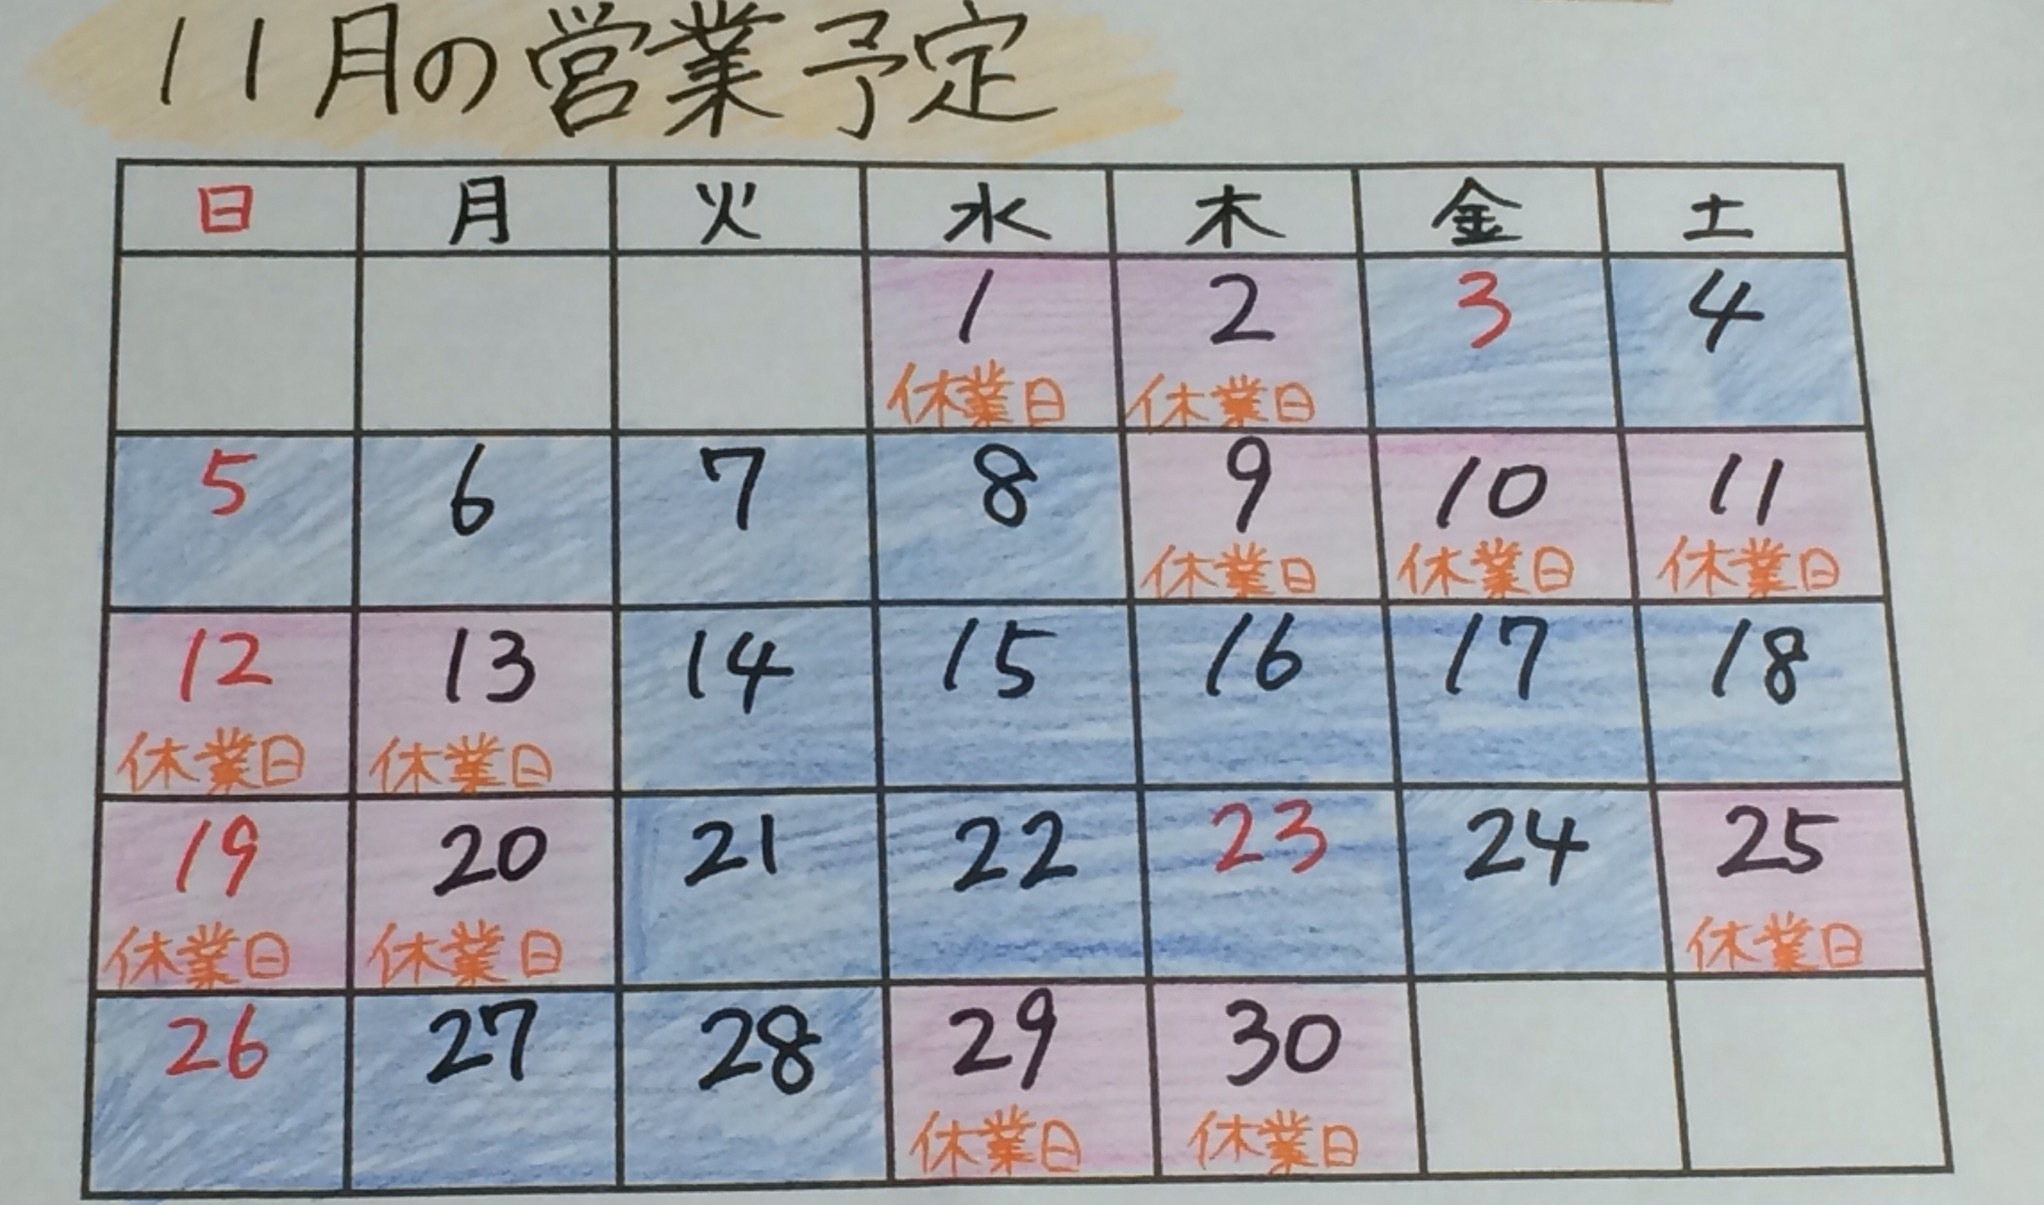 11月の営業予定
日 月 火 水 木 金 土
1 2 3 4
休業日 休業日
5 6 7 8 9 10 11
休業日 休業日 休業日
12 13 14 15 16 17 18
休業日 休業日
19 20 21 22 23 24 25
休業日 休業日 休業日
26 27 28 29 30
休業日 休業日